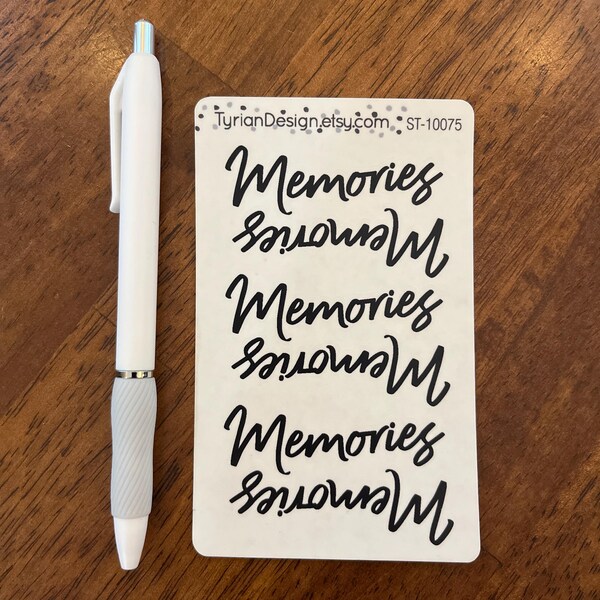 TyrianDesign.etsy.com ST-10075
Memories
Memories
Memories
Memories
Memories
Memories